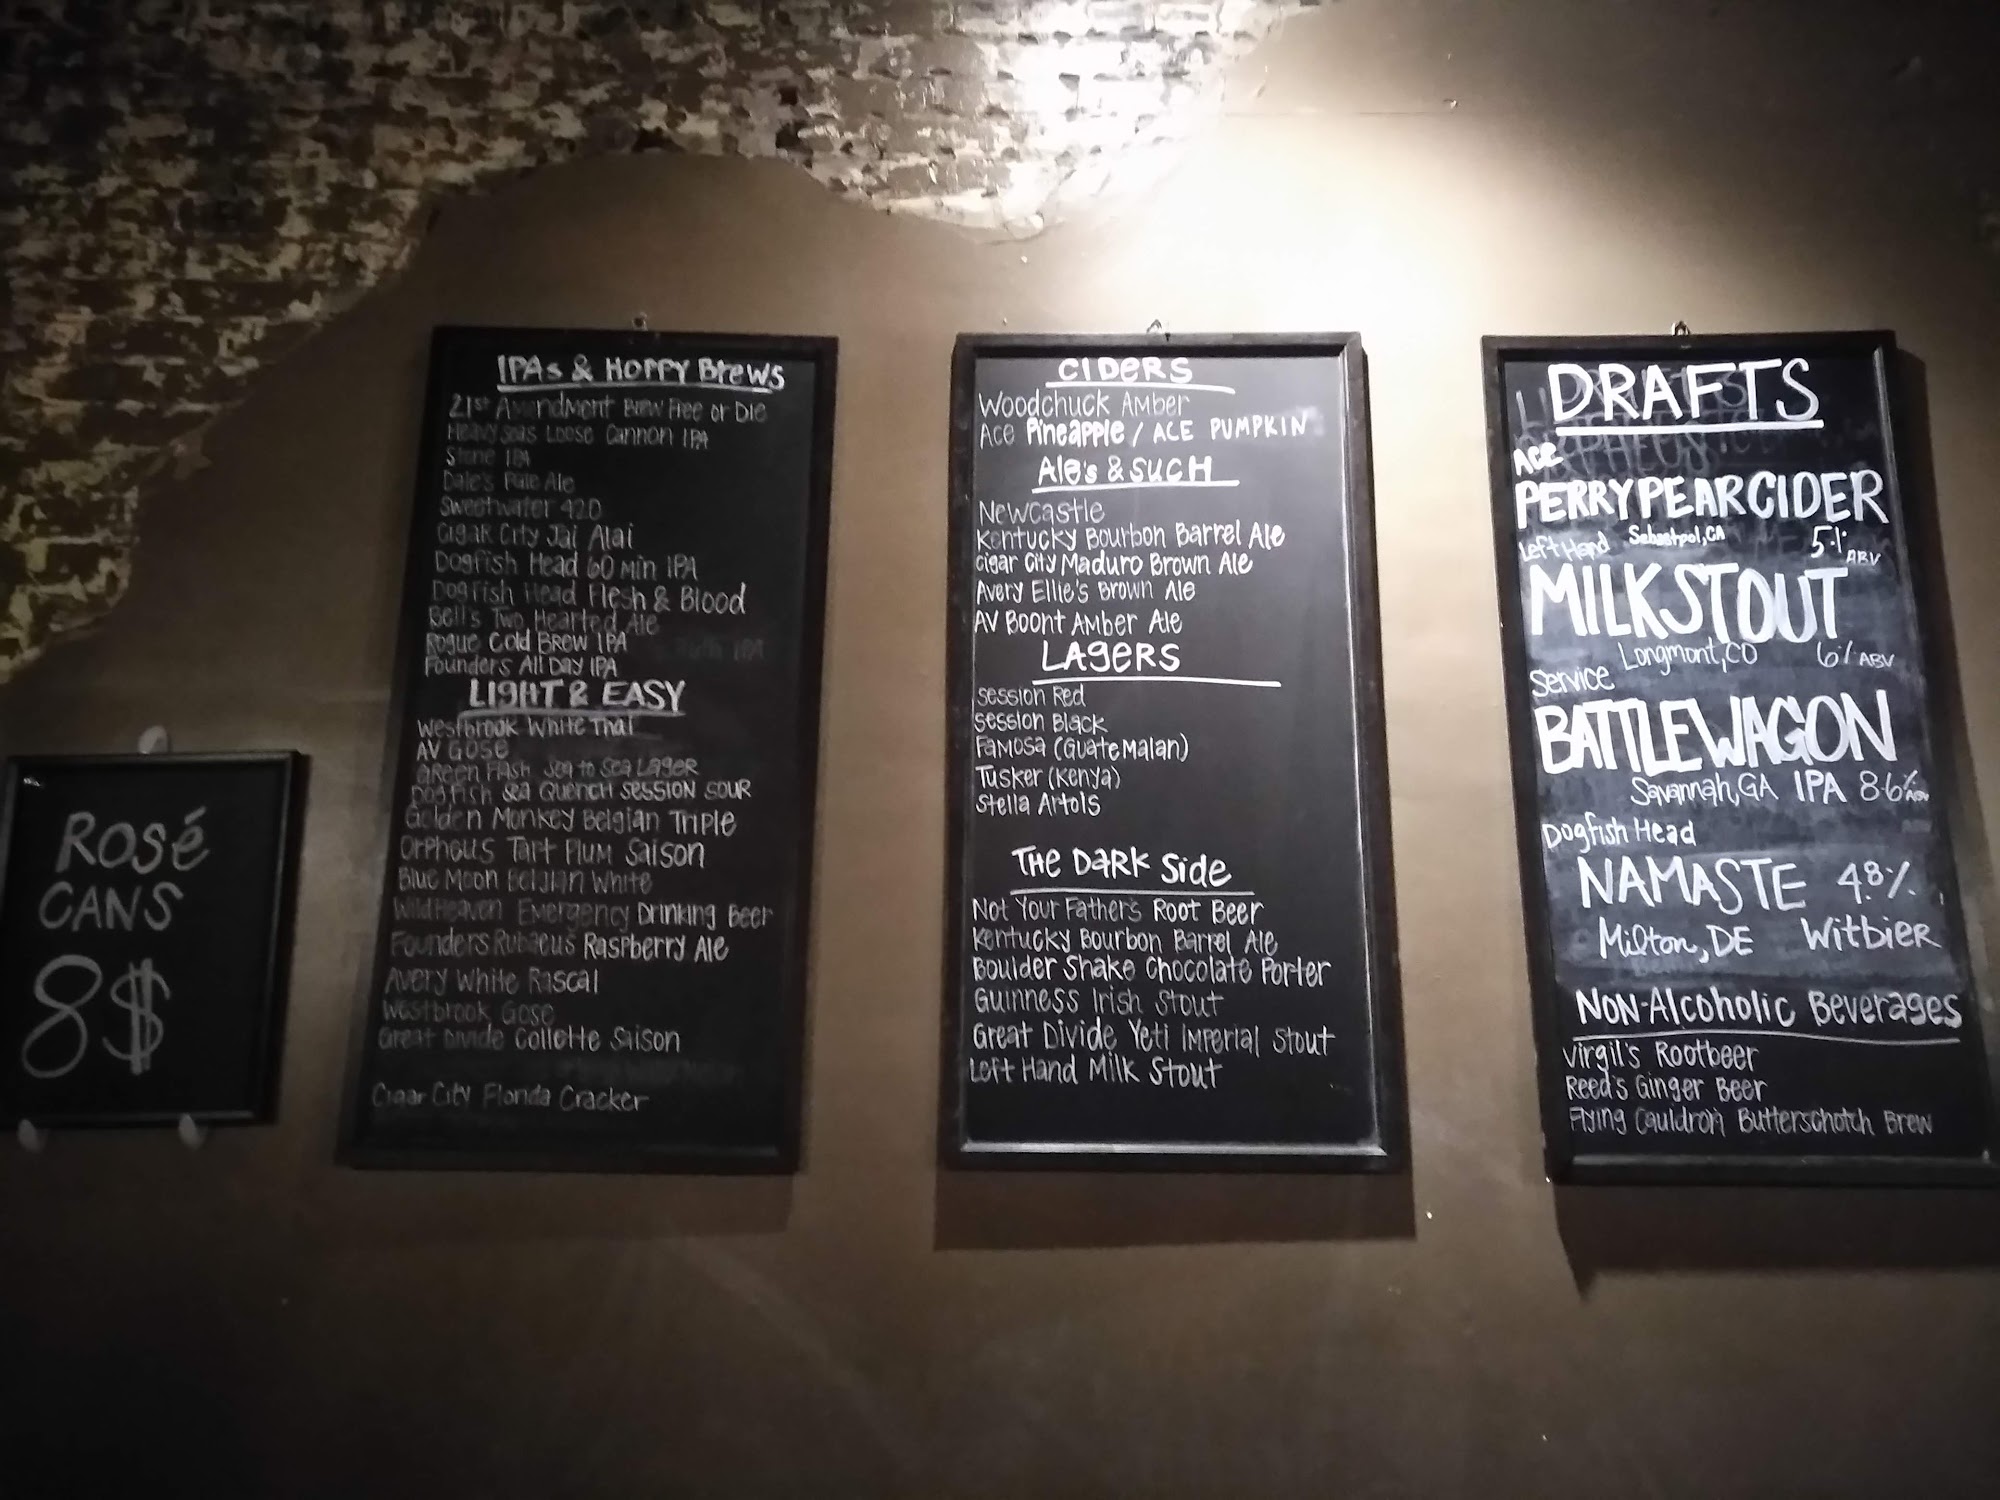 ROSÉ
CANS
8$
IPAs & HOPPY BREWS
21st Amendment Brew Free or Die
Heavy Seas Loose Cannon IPA
Stone IPA
Dale's Pale Ale
Sweetwater 420
Cigar City Jai Alai
Dogfish Head 60 min IPA
Dogfish Head Flesh & Blood
Bell's Two Hearted Ale
Rogue Cold Brew IPA
Founders All Day IPA
LIGHT & EASY
Westbrook White Thai
AV GOSE
Green Flash Sea to Sea Lager
Dogfish Sea Quench Session Sour
Golden Monkey Belgian Triple
Orpheus Tart Plum Saison
Blue Moon Belgian White
Wild Heaven Emergency Drinking Beer
Founders Rubaeus Raspberry Ale
Avery White Rascal
Westbrook Gose
Great Divide Collette Saison
Cigar City Florida Cracker
CIDERS
Woodchuck Amber
Ace Pineapple / ACE PUMPKIN
Ale's & SUCH
Newcastle
Kentucky Bourbon Barrel Ale
Cigar City Maduro Brown Ale
Avery Ellie's Brown Ale
AV Boont Amber Ale
LAGERS
Session Red
Session Black
Famosa (Guatemalan)
Tusker (Kenya)
Stella Artois
THE DARK SIDE
Not Your Father's Root Beer
Kentucky Bourbon Barrel Ale
Boulder Shake Chocolate Porter
Guinness Irish Stout
Great Divide Yeti Imperial Stout
Left Hand Milk Stout
DRAFTS
Ace
PERRY PEAR CIDER
Sebastpol, CA 5% ABV
Left Hand
MILK STOUT
Longmont, CO 6% ABV
Service
BATTLEWAGON
Savannah, GA IPA 8.6% ABV
Dogfish Head
NAMASTE 4.8%
Milton, DE Witbier
Non-Alcoholic Beverages
Virgil's Rootbeer
Reed's Ginger Beer
Flying Cauldron Butterschotch Brew